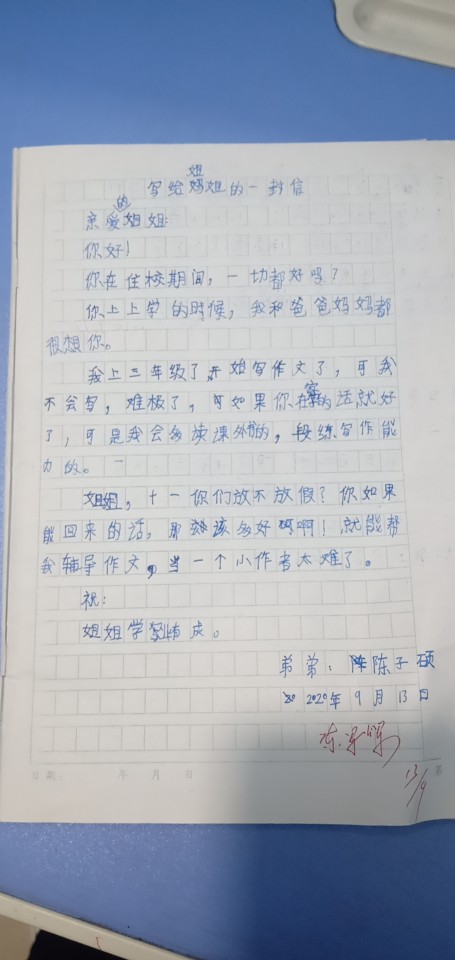 写给姐姐的一封信
亲爱的姐姐:
你好!
你在住校期间，一切都好吗?
你上上学的时候，我和爸爸妈妈都
很想你。
我上三年级了，开始写作文了，可我
不会写，难极了，可如果你在家的话就好
了，可是我会多读课外的，段练写作能
力的。
姐姐，十一你们放不放假?你如果
能回来的话，那该多好啊!就能帮
我辅导作文，当一个小作者太难了。
祝:
姐姐学有成。
弟弟:陈子硕
2020年9月13日
13/9
日期: 年 月 日 第